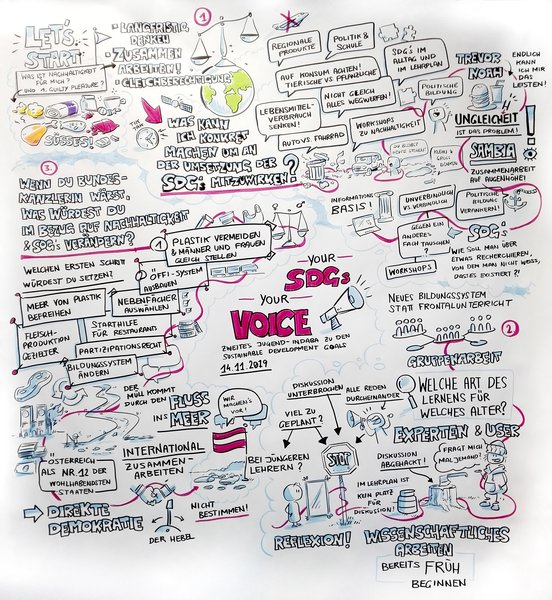 LET'S
START
WAS IST NACHHALTIGKEIT
FÜR MICH?
UND 1 GUILTY PLEASURE?
1
LANGFRISTIG
DENKEN
ZUSAMMEN
ARBEITEN!
GLEICHBERECHTIGUNG
WAS KANN
ICH KONKRET
MACHEN UM AN
DER UMSETZUNG DER
SDGs MITZUWIRKEN?
REGIONALE
PRODUKTE
POLITIK &
SCHULE
SDGs IM
ALLTAG UND
IM LEHRPLAN
AUF KONSUM ACHTEN!
TIERISCHE VS PFLANZLICHE
NICHT GLEICH
ALLES WEGWERFEN!
POLITISCHE
BILDUNG
LEBENSMITTEL-
VERBRAUCH
SENKEN!
AUTO VS. FAHRRAD
WORKSHOPS
ZU NACHHALTIGKEIT
TREVOR
NOAH
ENDLICH
KANN
ICH MIR
DAS
LEISTEN!
UNGLEICHHEIT
IST DAS PROBLEM!
SAMBIA
ZUSAMMENARBEIT
AUF AUGENHÖHE!
INFORMATIONS
BASIS!
UNVERBINDLICH
VS VERBINDLICH
POLITISCHE
BILDUNG
VERANKERN!
GEGEN EIN
ANDERES
FACH TAUSCHEN
?
WORKSHOPS
SDGs
WIE SOLL MAN ÜBER
ETWAS RECHERCHIEREN,
VON DEM MAN NICHT WEISS,
DAS ES EXISTIERT?!
3.
WENN DU BUNDES-
KANZLERIN WÄRST,
WAS WÜRDEST DU
IM BEZUG AUF NACHHALTIGKEIT
& SDGs VERÄNDERN?
WELCHEN ERSTEN SCHRITT
WÜRDEST DU SETZEN?
1 PLASTIK VERMEIDEN
& MÄNNER UND FRAUEN
GLEICH STELLEN
ÖFFI-SYSTEM
AUSBAUEN
MEER VON PLASTIK
BEFREIHEN
NEBENFÄCHER
AUSWÄHLEN
FLEISCH-
PRODUKTION
GEZIELTER
STARTHILFE
FÜR RESTAURANT
PARTIZIPATIONSRECHT
BILDUNGSSYSTEM
ÄNDERN
YOUR
SDGs
YOUR
VOICE
ZWEITES JUGEND-INDABA ZU DEN
SUSTAINABLE DEVELOPMENT GOALS
14.11.2019
NEUES BILDUNGSSYSTEM
STATT FRONTALUNTERRICHT
2
GRUPPENARBEIT
DER
MÜLL KOMMT
DURCH DEN FLUSS
INS MEER
WIR
MACHEN'S
VOR!
ÖSTERREICH
ALS NR 12 DER
WOHLHABENDSTEN
STAATEN
INTERNATIONAL
ZUSAMMEN-
ARBEITEN
DIREKTE
DEMOKRATIE
DER HEBEL
NICHT
BESTIMMEN!
DISKUSSION
UNTERBROCHEN
ALLE REDEN
DURCHEINANDER
VIEL ZU
GEPLANT?
BEI JÜNGEREN
LEHRERN?
STOP
REFLEXION!
WELCHE ART DES
LERNENS FÜR
WELCHES ALTER?
EXPERTEN & USER
DISKUSSION
ABGEHACKT!
FRAGT MICH
MAL JEMAND!
IM LEHRPLAN IST
KEIN PLATZ
FÜR
DISKUSSION!
WISSENSCHAFTLICHES
ARBEITEN
BEREITS FRÜH
BEGINNEN